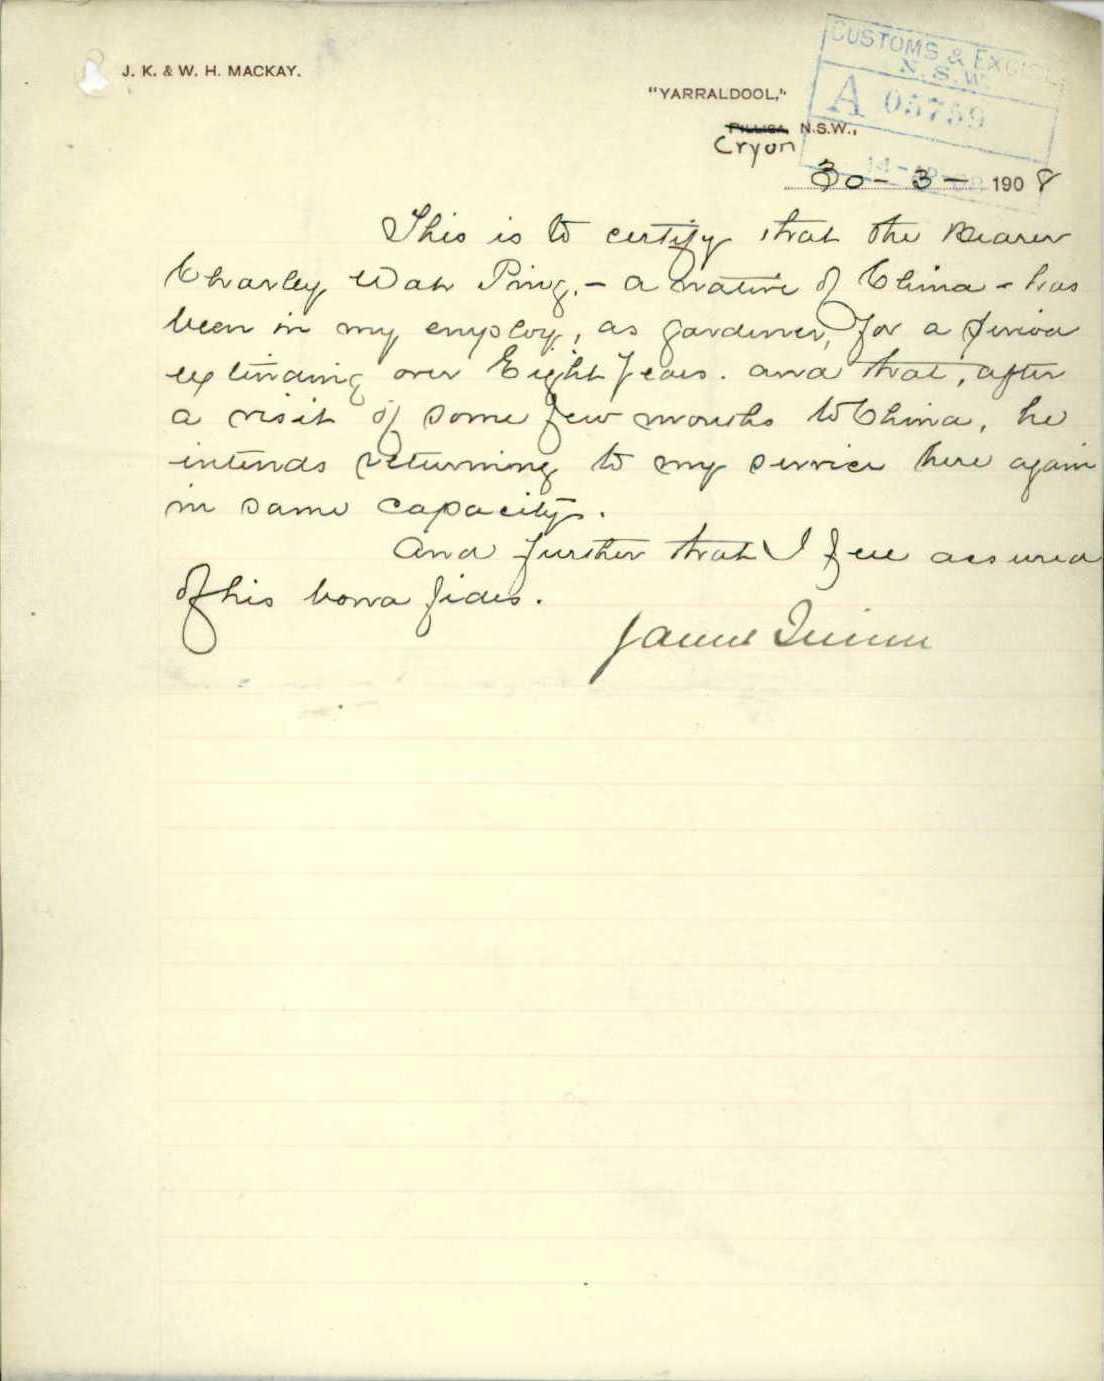 J. K. & W. H. MACKAY.
CUSTOMS & EXCISE
N.S.W.
A 05759
"YARRALDOOL,"
PILLIGA, N.S.W.,
Cryon
30 - 3 - 1908
This is to certify that the Bearer
Charley Wah Ping, - a native of China - has
been in my employ, as gardener, for a period
extending over Eight Years. and that, after
a visit of some few months to China, he
intends returning to my service here again
in same capacity.
And further that I feel assured
of his bona fides.
James Quinn